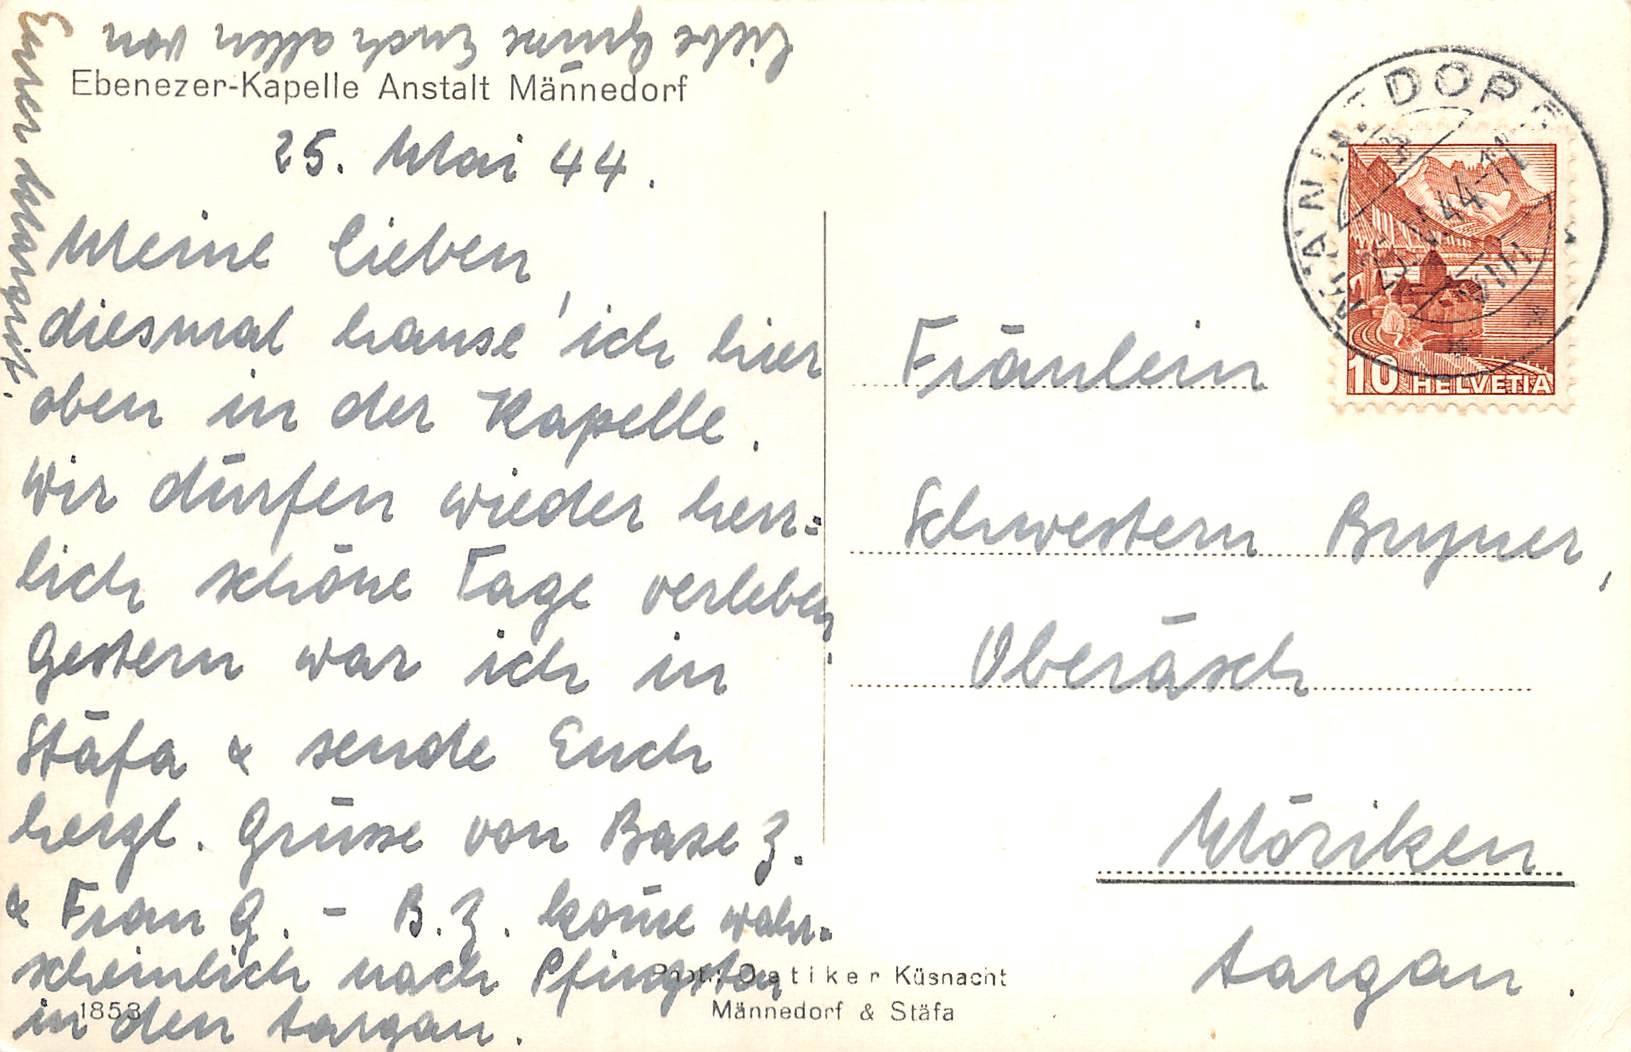 Liebe Grüsse Euch allen von
Eurer Margrit.
Ebenezer-Kapelle Anstalt Männedorf
25. Mai 44.
Meine Lieben,
diesmal hause ich hier
oben in der Kapelle.
Wir dürfen wieder herr-
lich schöne Tage verleben.
Gestern war ich in
Stäfa & sende Euch
herzl. Grüsse von Base Z.
& Frau G. - B. Z. komme wahr-
scheinlich nach Pfingsten
in den Aargau.
1853
Phot. Oetiker Küsnacht
Männedorf & Stäfa
MÄNNEDORF
44-11
VIII
10 HELVETIA
Fräulein
Schwestern Bryner,
Oberäsch
Möriken
Aargau.